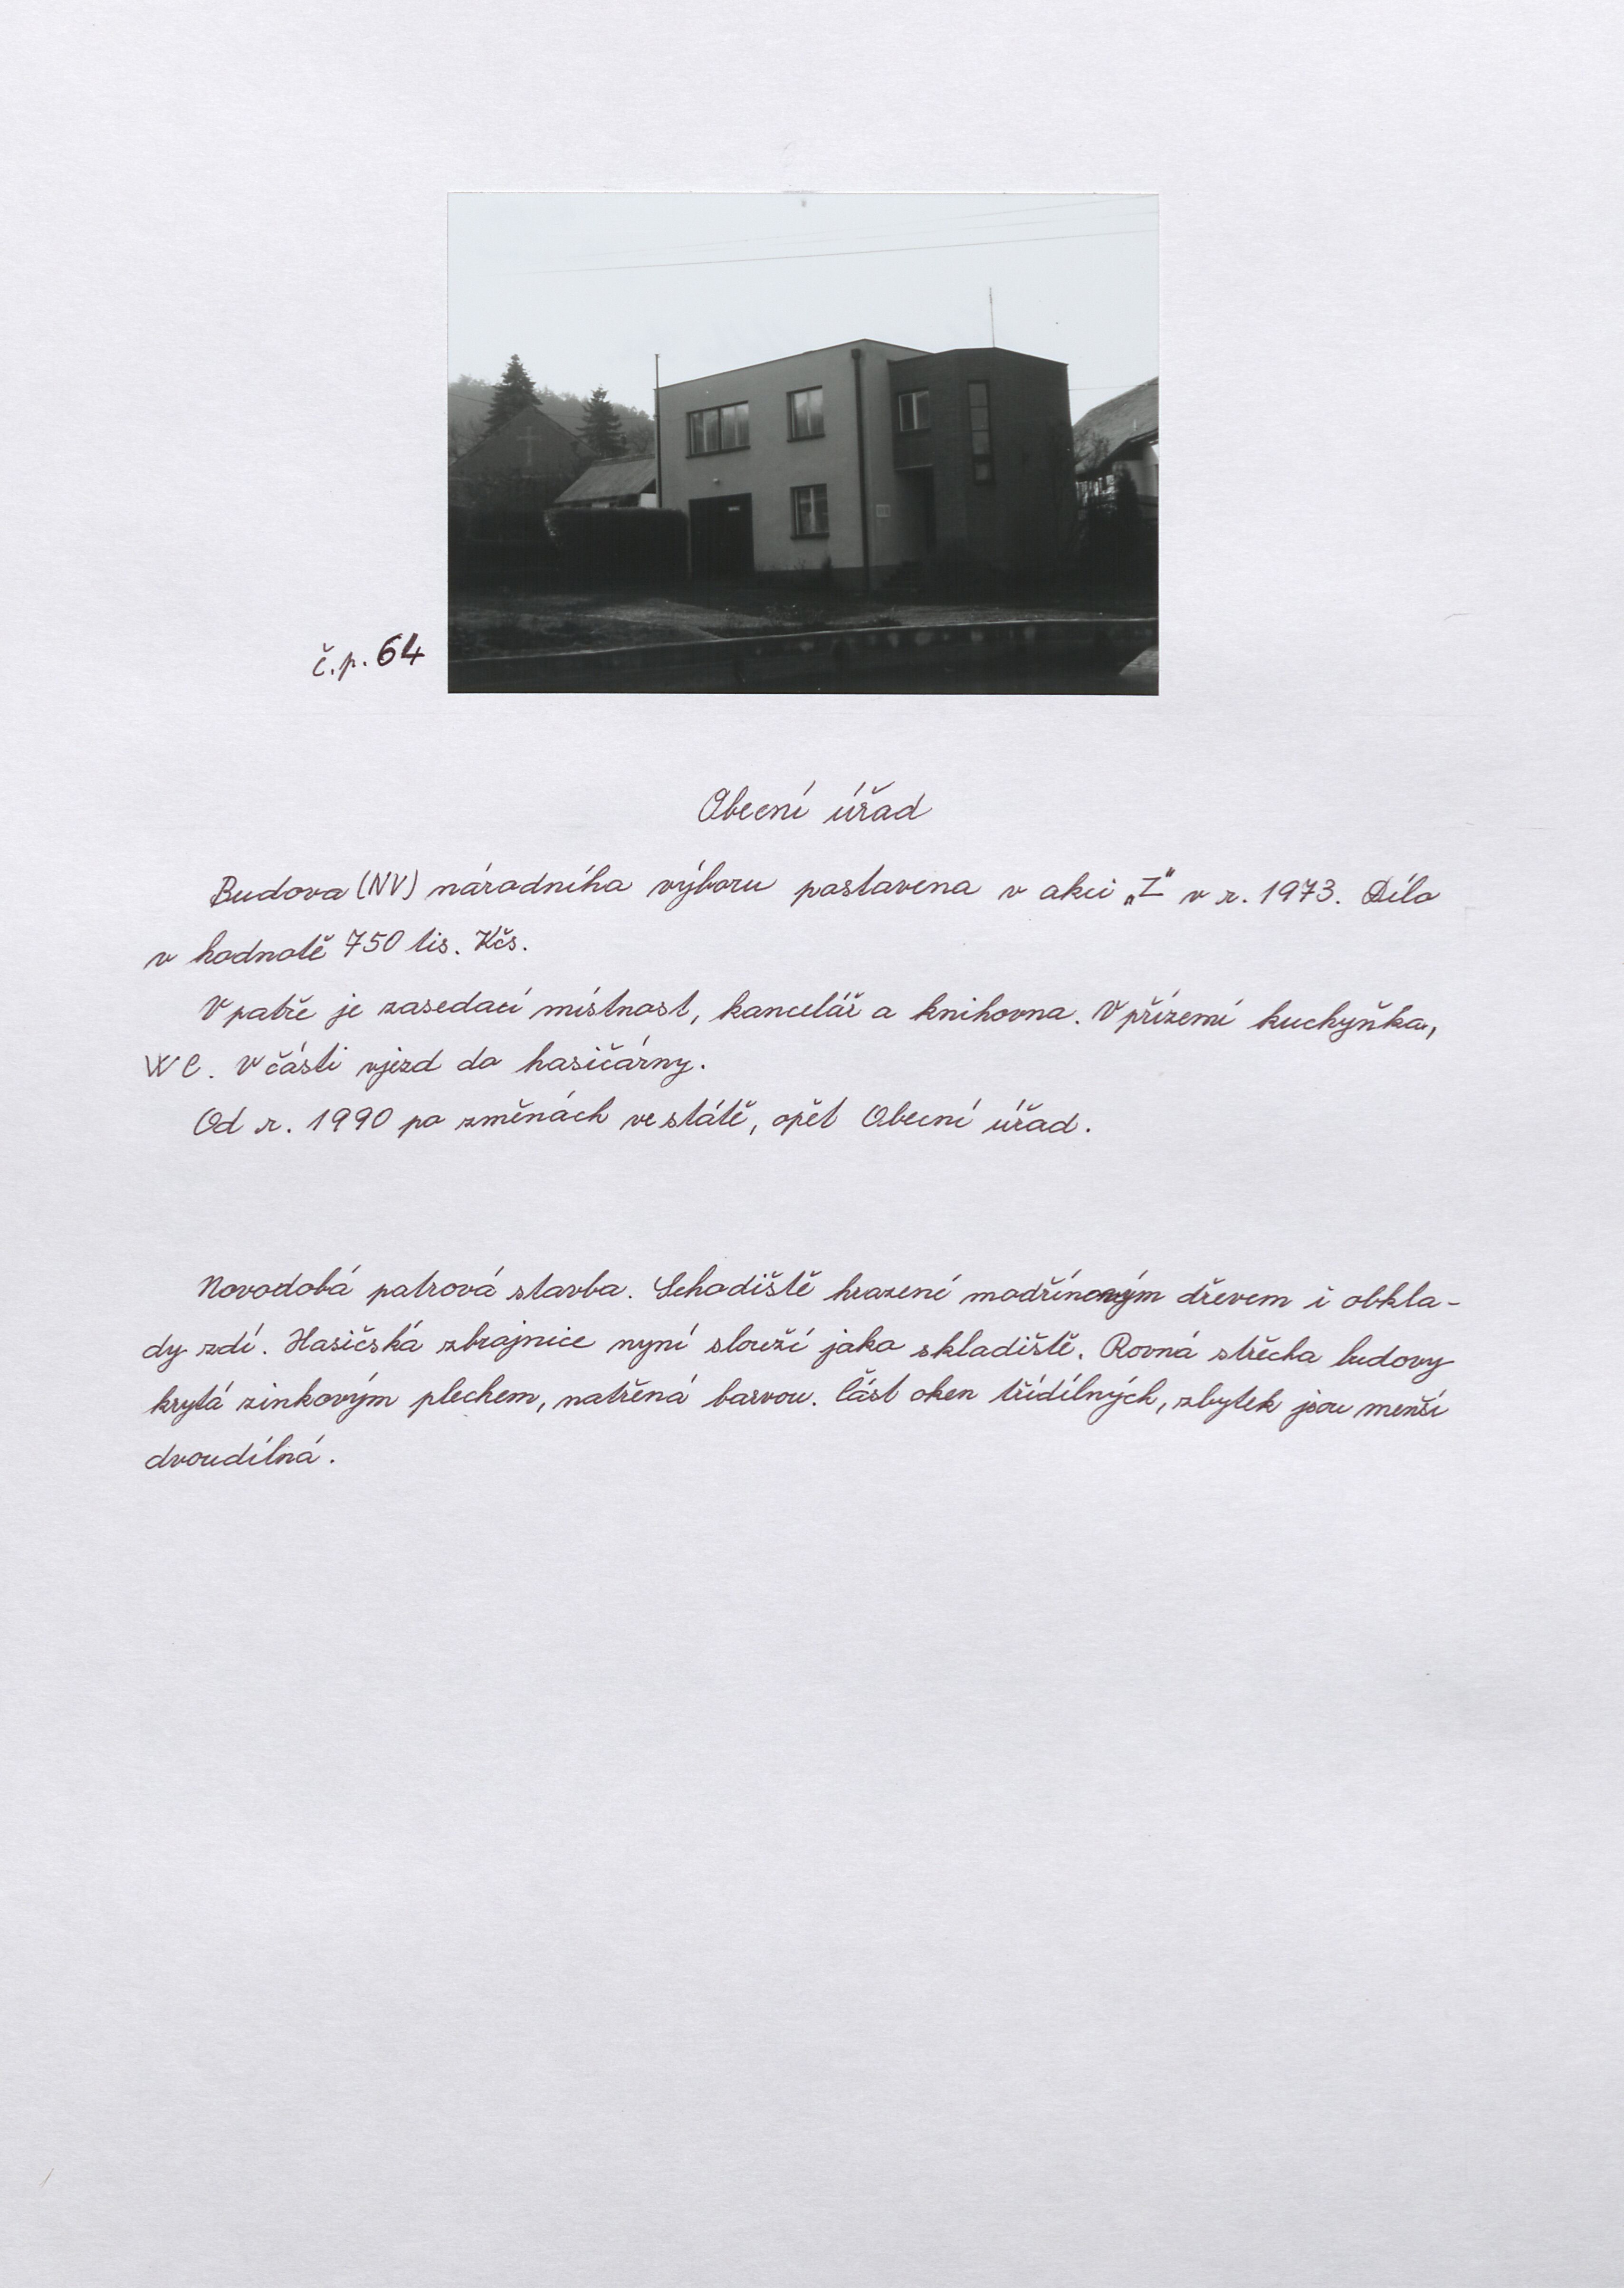 č.p. 64
Obecní úřad
Budova (NV) národního výboru postavena v akci „Z“ v r. 1973. Dílo
v hodnotě 750 tis. Kčs.
V patře je zasedací místnost, kancelář a knihovna. V přízemí kuchyňka,
WC. V části vjezd do hasičárny.
Od r. 1990 po změnách ve státě, opět Obecní úřad.
Novodobá patrová stavba. Schodiště hrazení modřínovým dřevem i obkla-
dy zdí. Hasičská zbrojnice nyní slouží jako skladiště. Rovná střecha budovy
krytá zinkovým plechem, natřená barvou. Část oken třídílných, zbytek jsou menší
dvoudílná.